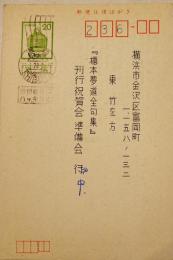 郵便往復はがき
20
236
横浜市金沢区富岡町
一、一五八ノ一三二
東竹左方
『橋本夢道全句集』
刊行祝賀会準備会 行
中